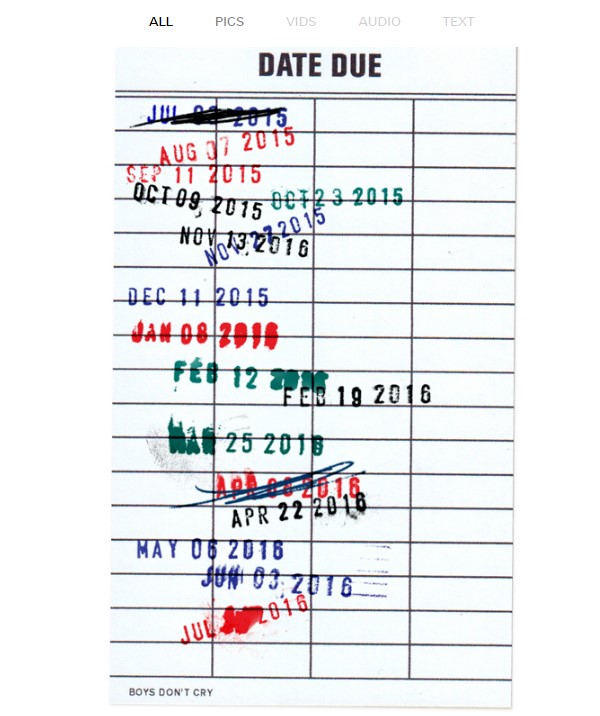 ALL PICS VIDS AUDIO TEXT
DATE DUE
JUL 2015
AUG 07 2015
SEP 11 2015
OCT 09, 2015
OCT 23 2015
NOV 27 2015
NOV 13, 2016
DEC 11 2015
JAN 08 2016
FEB 12 2016
FEB 19 2016
MAR 25 2016
APR 08 2016
APR 22 2016
MAY 06 2016
JUN 03, 2016
JUL 2016
BOYS DON'T CRY